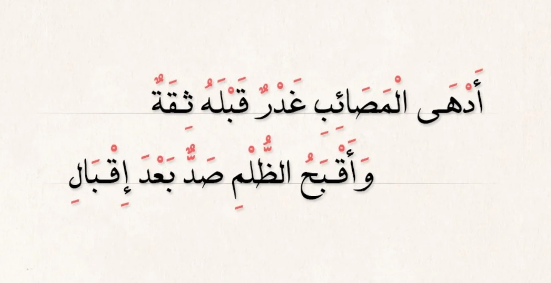 أَدْهَى الْمَصَائِبِ غَدْرٌ قَبْلَهُ ثِقَةٌ
وَأَقْبَحُ الظُّلْمِ صَدٌّ بَعْدَ إِقْبَالِ